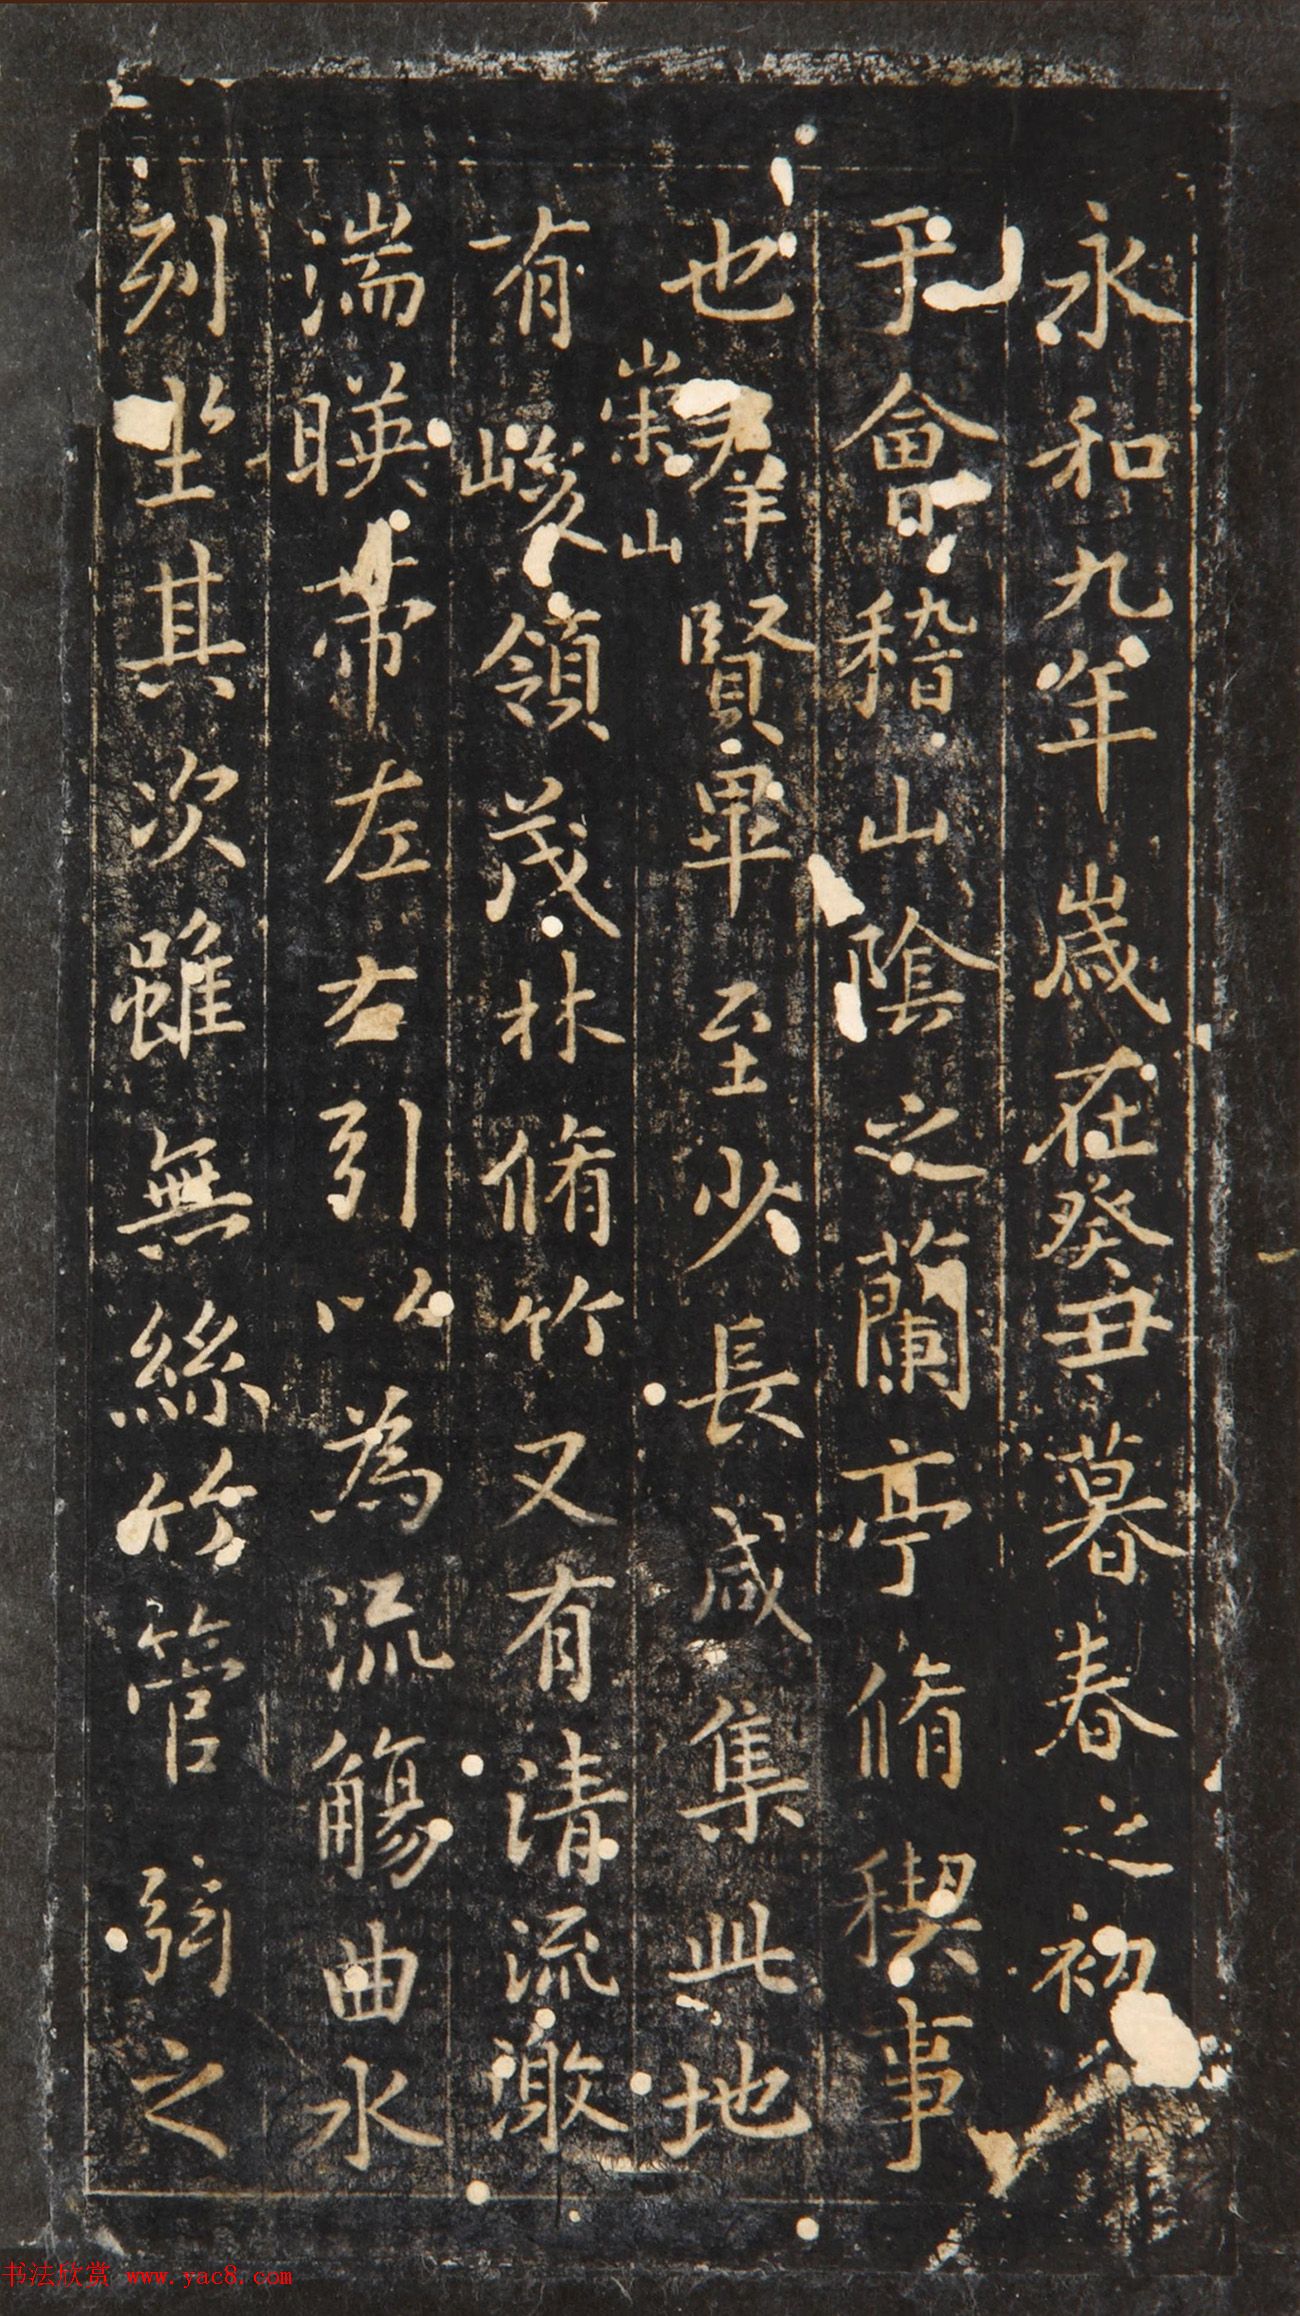 永和九年歲在癸丑暮春之初
于會稽山陰之蘭亭脩稧事
也羣賢畢至少長咸集此地
崇山
有峻領茂林脩竹又有清流激
湍暎帶左右引以為流觴曲水
列坐其次雖無絲竹管弦之
书法欣赏 www.yac8.com